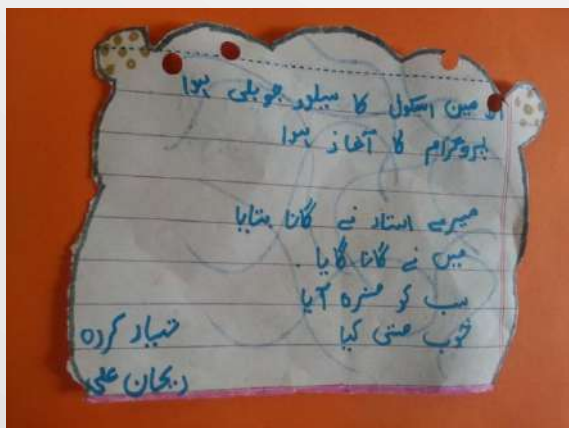 الامین اسکول کا سیلور جوبلی ہوا
پروگرام کا آغاز ہوا
میرے استاد نے گانا بنایا
میں نے گانا گایا
سب کو مزہ آیا
خوب مستی کیا
تیار کردہ
ریحان علی